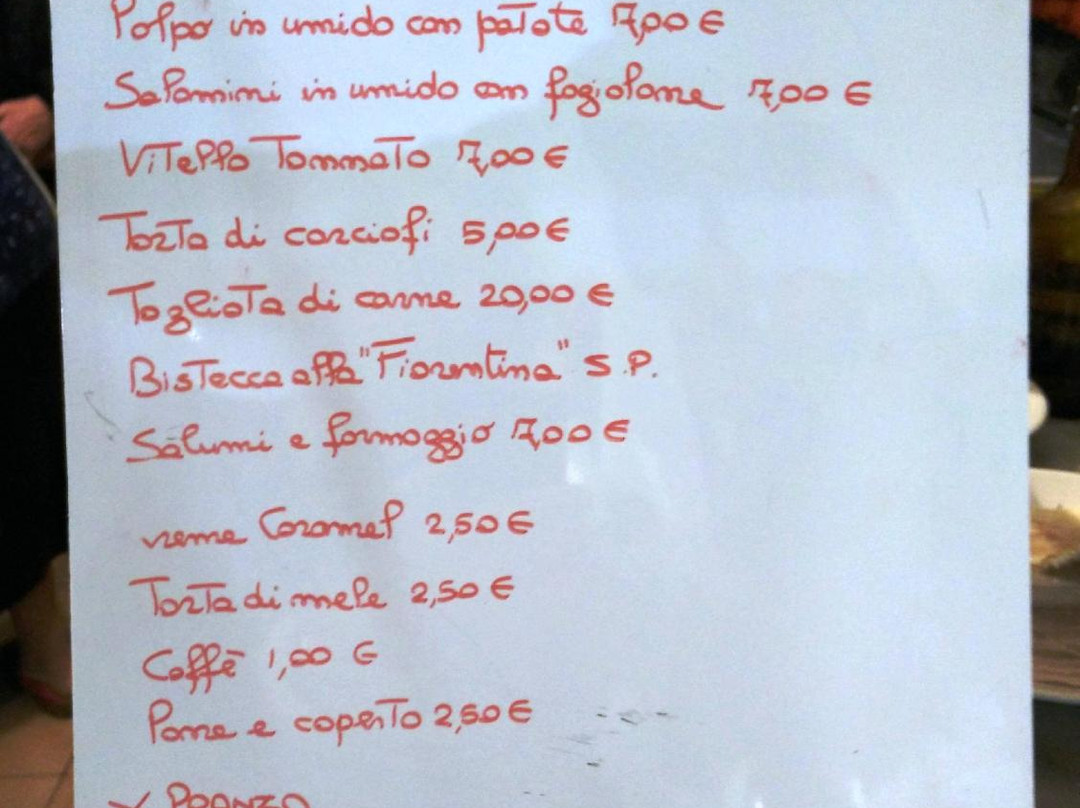 Polpo in umido con patate 7,00 €
Salamini in umido con fagiolane 7,00 €
Vitello Tonnato 7,00 €
Torta di carciofi 5,00 €
Tagliata di carne 20,00 €
Bistecca alla "Fiorentina" S.P.
Salumi e formaggio 7,00 €
creme Caramel 2,50 €
Torta di mele 2,50 €
Caffè 1,00 €
Pane e coperto 2,50 €
PRANZO